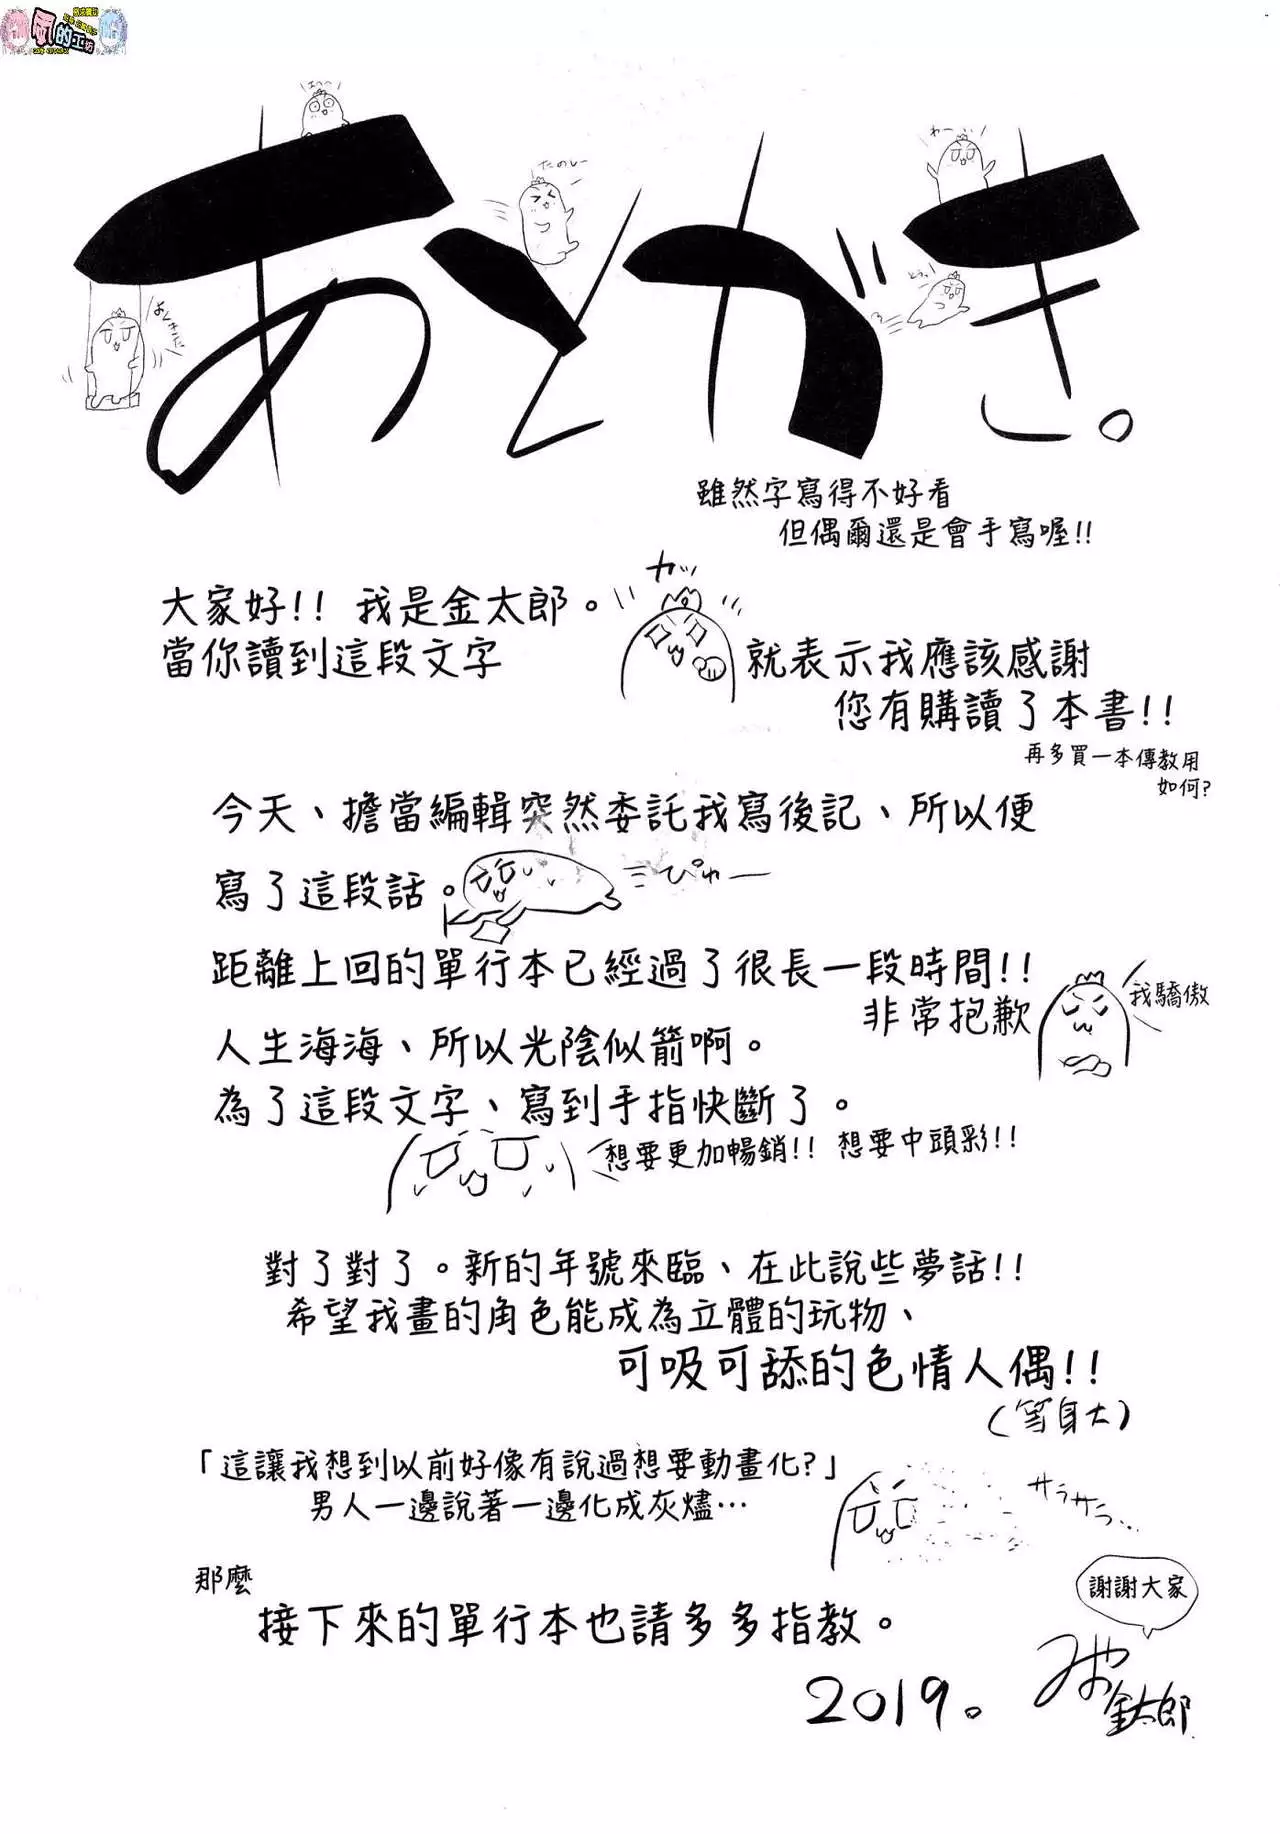 風的工坊
えへへ
たのしー
わーふぃ
とうっ
あとがき。
雖然字寫得不好看
但偶爾還是會手寫喔!!
大家好!! 我是金太郎。
ガッ
當你讀到這段文字
就表示我應該感謝
您有購讀了本書!!
再多買一本傳教用
如何?
今天、擔當編輯突然委託我寫後記、所以便
寫了這段話。
ぴゅー
距離上回的單行本已經過了很長一段時間!!
非常抱歉
我驕傲
人生海海、所以光陰似箭啊。
為了這段文字、寫到手指快斷了。
想要更加暢銷!! 想要中頭彩!!
對了對了。新的年號來臨、在此說些夢話!!
希望我畫的角色能成為立體的玩物、
可吸可舔的色情人偶!!
(等身大)
「這讓我想到以前好像有說過想要動畫化?」
男人一邊說著一邊化成灰燼…
サラサラ…
那麼
接下來的單行本也請多多指教。
謝謝大家
2019。
みやお
金太郎